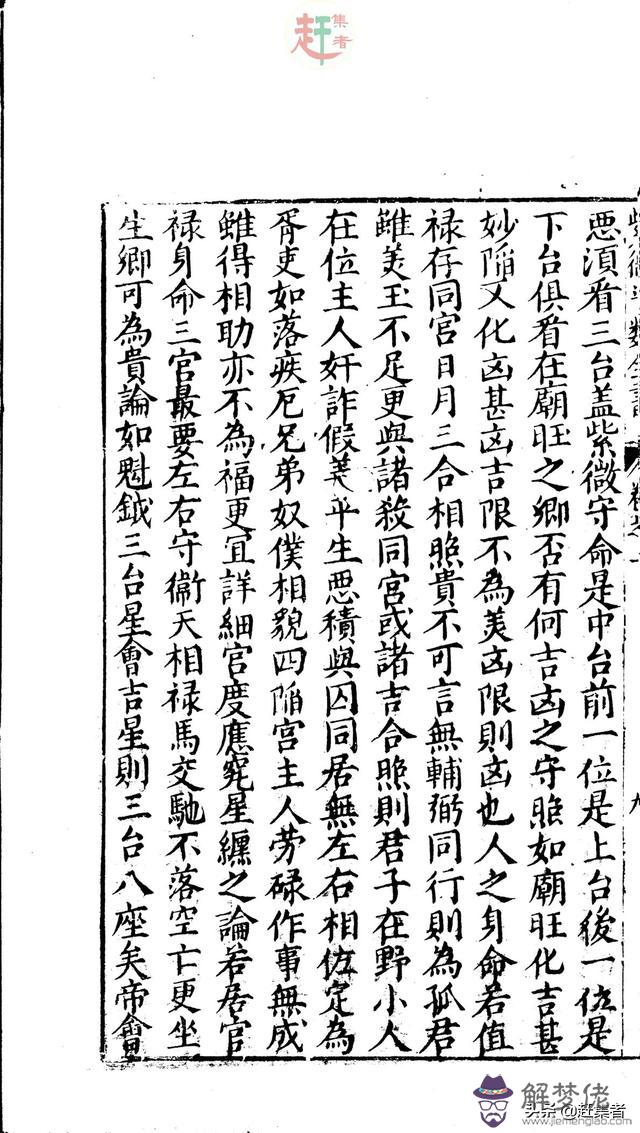 赶集者
悪須看三台盖紫微守命是中台前一位是上台後一位是
下台俱看在廟旺之鄉否有何吉凶之守照如廟旺化吉甚
妙陥又化凶甚凶吉限不為美凶限則凶也人之身命若值
禄存同宮日月三合相照貴不可言無輔弼同行則為孤君
雖美玉不足更與諸殺同宮或諸吉合照則君子在野小人
在位主人奸詐假善平生悪積與囚同居無左右相佐定為
胥吏如落疾厄兄弟奴僕相貌四陥宮主人劳碌作事無成
雖得相助亦不為福更宜詳細官度應究星纏之論若居官
禄身命三官最要左右守衞天相禄馬交馳不落空亡更坐
生鄉可為貴論如魁鉞三台星會吉星則三台八座矣帝會
解梦佬
头条 @赶集者
www.jiemenglao.com